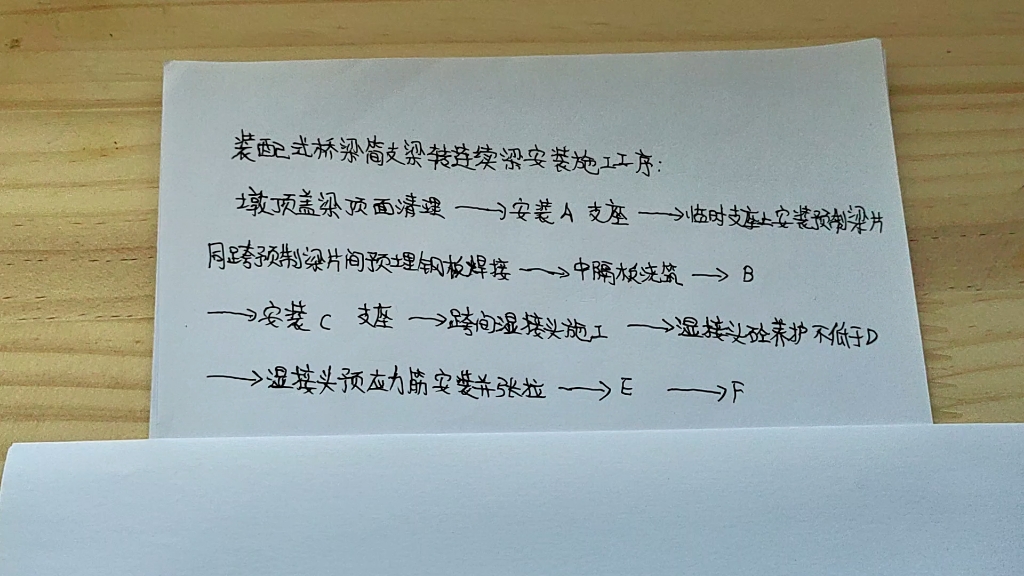 装配式桥梁简支梁转连续梁安装施工工序:
墩顶盖梁顶面清理 → 安装A 支座 → 临时支座上安装预制梁片
同跨预制梁片间预埋钢板焊接 → 中隔板浇筑 → B
→ 安装C 支座 → 跨间湿接头施工 → 湿接头砼养护不低于D
→ 湿接头预应力筋安装并张拉 → E → F